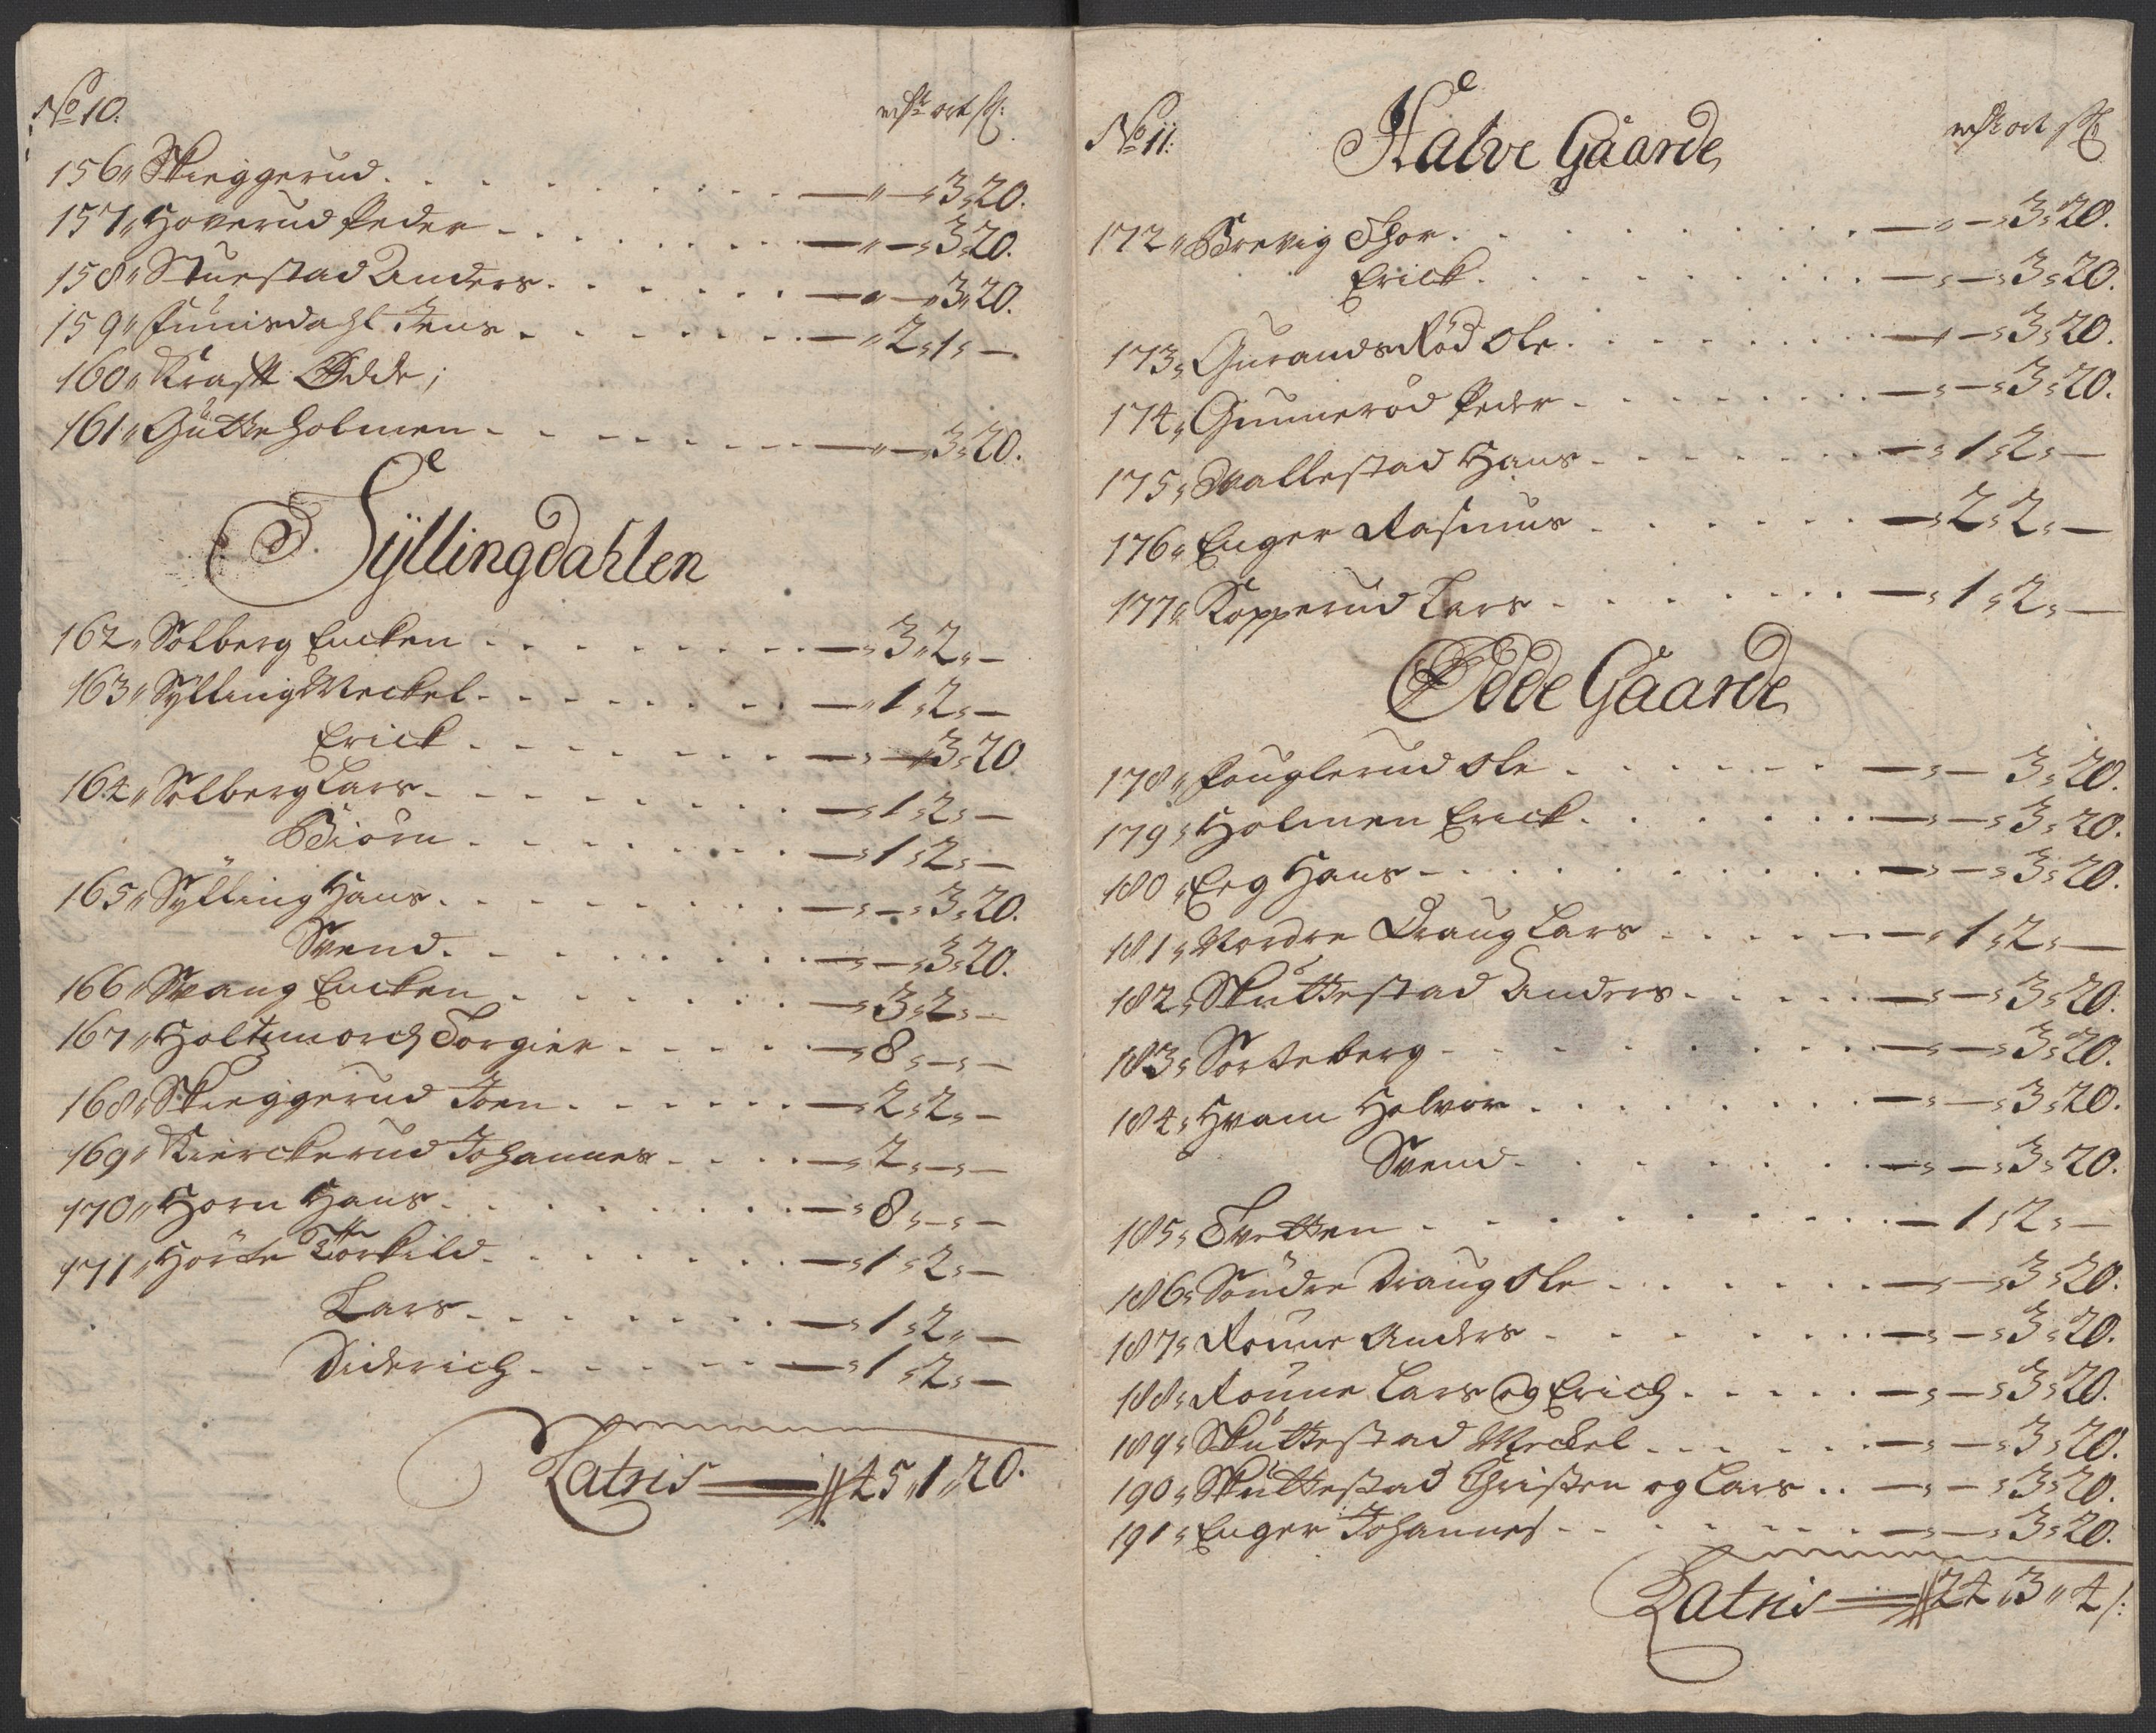 No 10.
rdr ort ß:
156„ Skieggerud . . . — „ — „ 3„ 20.
157„ Hoverud Peder - . . . — „ — „ 3„ 20.
158„ Sturstad Anders . . . — „ — „ 3„ 20.
159„ Funisdahl Jens . . . — „ 2„ 1„ —
160„ Kraft Ødde;
161„ Gutteholmen . . . — „ — „ 3„ 20.
Syllingdahlen
162„ Solberg Encken . . . — „ 3„ 2„ —
163„ Sylling Meckel . . . — „ 1„ 2„ —
Erick . . . — „ — „ 3„ 20
164„ Solberg Lars . . . — „ 1„ 2„ —
Biörn . . . — „ 1„ 2„ —
165„ Sylling Hans . . . — „ — „ 3„ 20.
Svend . . . — „ — „ 3„ 20.
166„ Svang Encken . . . — „ 3„ 2„ —
167„ Holtzmorch Torgier . . . — „ 8„ — „ —
168„ Skieggerud Joen . . . — „ 2„ 2„ —
169„ Kierckerud Johannes . . . — „ 2„ — „ —
170„ Horn Hans . . . — „ 8„ — „ —
171„ Hörte Torkild . . . — „ 1„ 2„ —
Lars . . . — „ 1„ 2„ —
Diderich . . . — „ 1„ 2„ —
Latris — 45„ 1„ 20.
No 11:
Halve Gaarde
rdr ort ß
172„ Brevig Thor . . . — „ — „ 3„ 20.
Erick . . . — „ — „ 3„ 20.
173„ Gurandsröd Ole . . . — „ — „ 3„ 20.
174„ Gunneröd Peder . . . — „ — „ 3„ 20.
175„ Vallestad Hans . . . — „ 1„ 2„ —
176„ Enger Rasmus . . . — „ 2„ 2„ —
177„ Kopperud Lars . . . — „ 1„ 2„ —
Ødde Gaarde
178„ Fouglerud Ole . . . — „ — 3„ 20.
179„ Holmen Erick . . . — „ — „ 3„ 20.
180„ Eeg Hans . . . — „ — „ 3„ 20.
181„ Nordre Draug Lars . . . — „ 1„ 2„ —
182„ Skuttestad Anders . . . — „ — „ 3„ 20.
183„ Sorteberg . . . — „ — „ 3„ 20.
184„ Hvam Halvor . . . — „ — „ 3„ 20.
Svend . . . — „ — „ 3„ 20.
185„ Tvetten . . . — 1„ 2„ —
186„ Söndre Draug Ole . . . — „ — „ 3„ 20.
187„ Rönne Anders . . . — „ — „ 3„ 20.
188„ Rönne Lars og Erich . . . — „ — „ 3„ 20.
189„ Skuttestad Meckel . . . — „ — „ 3„ 20.
190„ Skuttestad Christen og Lars . . — „ — „ 3„ 20.
191„ Enger Johannes . . . — „ — „ 3„ 20.
Latris — 24„ 3„ 4 /: